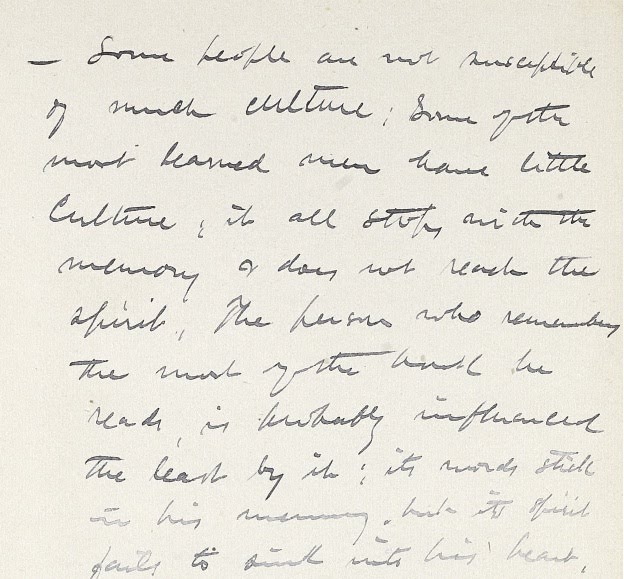 – Some people are not susceptible
of much culture; Some of the
most learned men have little
Culture; it all stops with the
memory & does not reach the
spirit, The person who remembers
the most of the book he
reads, is probably influenced
the least by it; its words stick
in his memory, but its spirit
fails to sink into his heart,